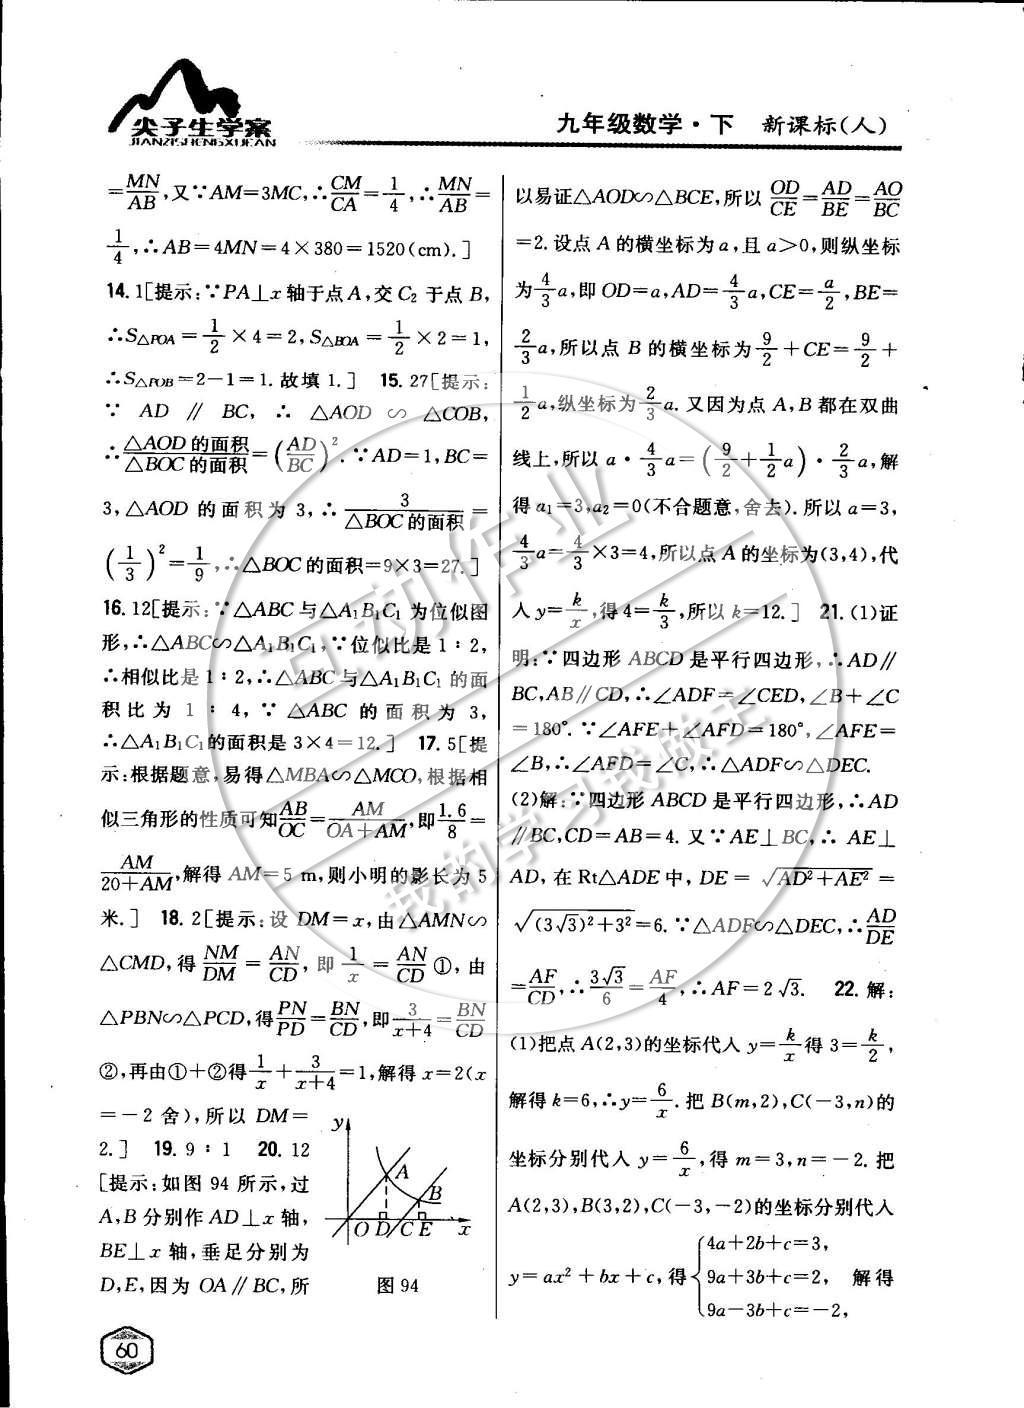 尖子生学案
JIANZISHENGXUEAN
九年级数学·下 新课标(人)
=MN/AB,又∵AM=3MC,∴CM/CA=1/4,∴MN/AB=
1/4,∴AB=4MN=4×380=1520(cm).]
14.1[提示:∵PA⊥x轴于点A,交C₂于点B,
∴S△POA=1/2×4=2,S△BOA=1/2×2=1,
∴S△POB=2-1=1.故填1.] 15.27[提示:
∵AD∥BC,∴△AOD∽△COB,
∴△AOD的面积/△BOC的面积=(AD/BC)².∵AD=1,BC=
3,△AOD的面积为3,∴3/△BOC的面积=
(1/3)²=1/9,∴△BOC的面积=9×3=27.]
16.12[提示:∵△ABC与△A₁B₁C₁为位似图
形,∴△ABC∽△A₁B₁C₁,∵位似比是1∶2,
∴相似比是1∶2,∴△ABC与△A₁B₁C₁的面
积比为1∶4,∵△ABC的面积为3,
∴△A₁B₁C₁的面积是3×4=12.] 17.5[提
示:根据题意,易得△MBA∽△MCO,根据相
似三角形的性质可知AB/OC=AM/(OA+AM),即1.6/8=
AM/(20+AM),解得AM=5 m,则小明的影长为5
米.] 18.2[提示:设DM=x,由△AMN∽
△CMD,得NM/DM=AN/CD,即1/x=AN/CD①,由
△PBN∽△PCD,得PN/PD=BN/CD,即3/(x+4)=BN/CD
②,再由①+②得1/x+3/(x+4)=1,解得x=2(x
=-2舍),所以DM=
2.] 19.9∶1 20.12
[提示:如图94所示,过
A,B分别作AD⊥x轴,
BE⊥x轴,垂足分别为
D,E,因为OA∥BC,所
y
A
B
O D C E x
图94
以易证△AOD∽△BCE,所以OD/CE=AD/BE=AO/BC
=2.设点A的横坐标为a,且a>0,则纵坐标
为4/3a,即OD=a,AD=4/3a,CE=a/2,BE=
2/3a,所以点B的横坐标为9/2+CE=9/2+
1/2a,纵坐标为2/3a.又因为点A,B都在双曲
线上,所以a·4/3a=(9/2+1/2a)·2/3a,解
得a₁=3,a₂=0(不合题意,舍去).所以a=3,
4/3a=4/3×3=4,所以点A的坐标为(3,4),代
入y=k/x,得4=k/3,所以k=12.] 21.(1)证
明:∵四边形ABCD是平行四边形,∴AD∥
BC,AB∥CD,∴∠ADF=∠CED,∠B+∠C
=180°.∵∠AFE+∠AFD=180°,∠AFE=
∠B,∴∠AFD=∠C,∴△ADF∽△DEC.
(2)解:∵四边形ABCD是平行四边形,∴AD
∥BC,CD=AB=4.又∵AE⊥BC,∴AE⊥
AD,在Rt△ADE中,DE=√(AD²+AE²)=
√((3√3)²+3²)=6.∵△ADF∽△DEC,∴AD/DE
=AF/CD,∴3√3/6=AF/4,∴AF=2√3. 22.解:
(1)把点A(2,3)的坐标代入y=k/x得3=k/2,
解得k=6,∴y=6/x.把B(m,2),C(-3,n)的
坐标分别代入y=6/x,得m=3,n=-2.把
A(2,3),B(3,2),C(-3,-2)的坐标分别代入
y=ax²+bx+c,得{4a+2b+c=3,
9a+3b+c=2, 解得
9a-3b+c=-2,
60
互动作业
我的学习我做主